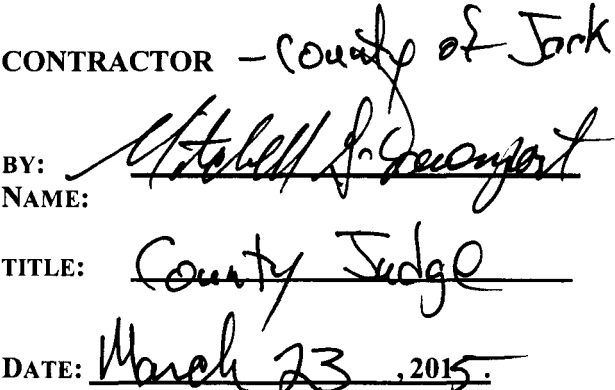 CONTRACTOR - County of Jack
BY: Mitchell G. Davenport
NAME:
TITLE: County Judge
DATE: March 23, 2015.